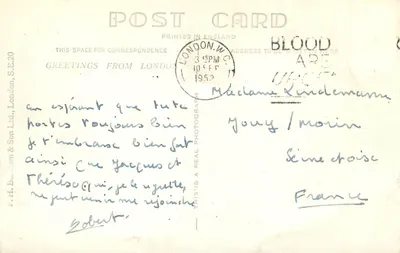 POST CARD
PRINTED IN ENGLAND
THIS SPACE FOR CORRESPONDENCE
GREETINGS FROM LONDON
LONDON. W.C.
PM
SEP
1952
BLOOD
ARE
en espérant que tu te
portes toujours bien
je t'embrasse bien fort
ainsi que Jacques et
Thérèse qui, je le regrette,
ne peut venir me rejoindre
Robert
Madame Lindemann
Jouy / Morin
Seine et oise
France
Son Ltd., London, S.E.20
A REAL PHOTOGRAPH